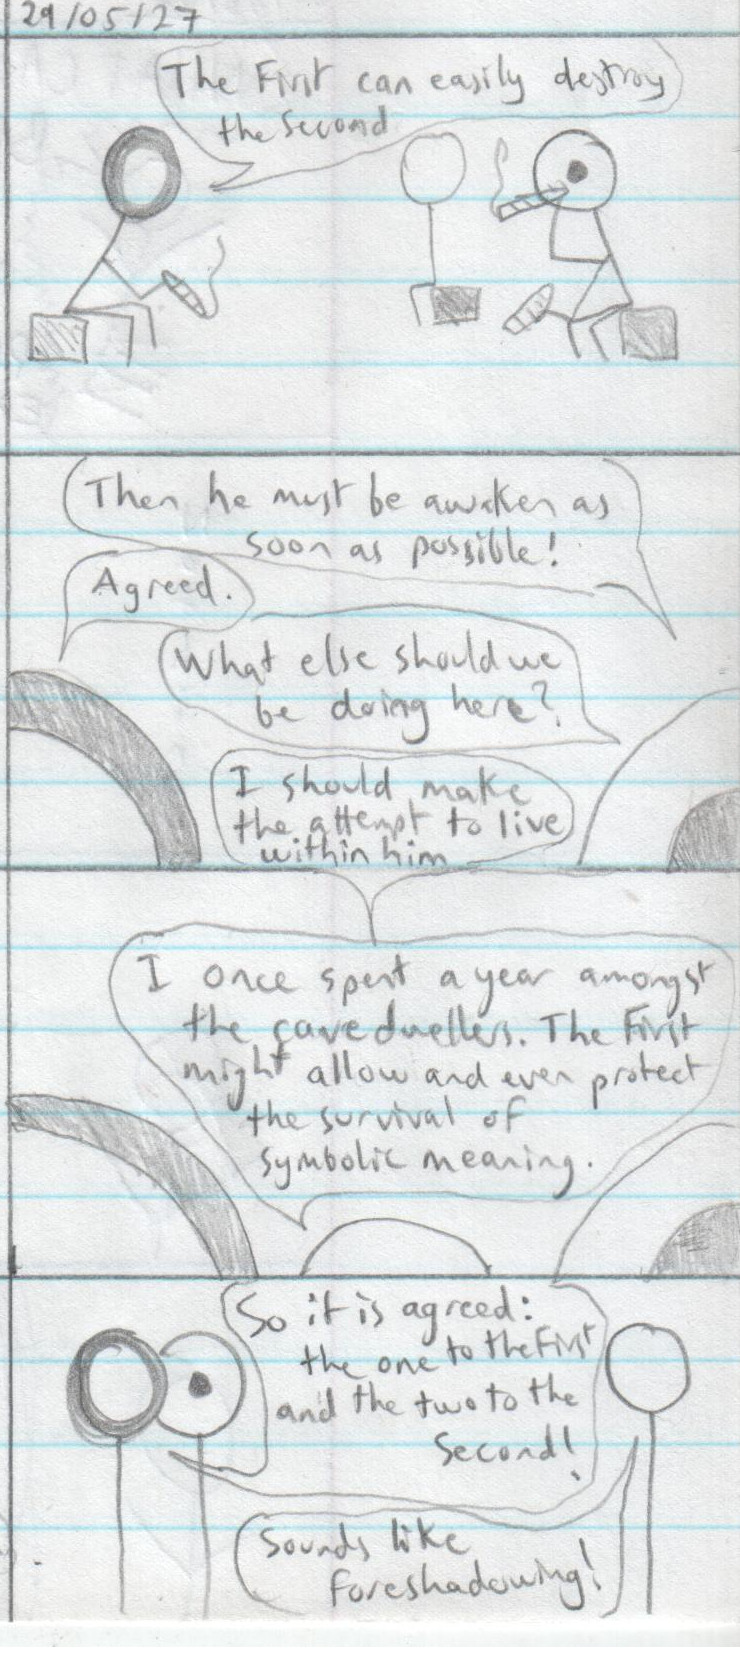 29/05/27
The First can easily destroy
the Second
Then he must be awaken as
soon as possible!
Agreed.
What else should we
be doing here?
I should make
the attempt to live
within him
I once spent a year amongst
the cave dwellers. The First
might allow and even protect
the survival of
symbolic meaning.
So it is agreed:
the one to the First
and the two to the
Second!
Sounds like
foreshadowing!